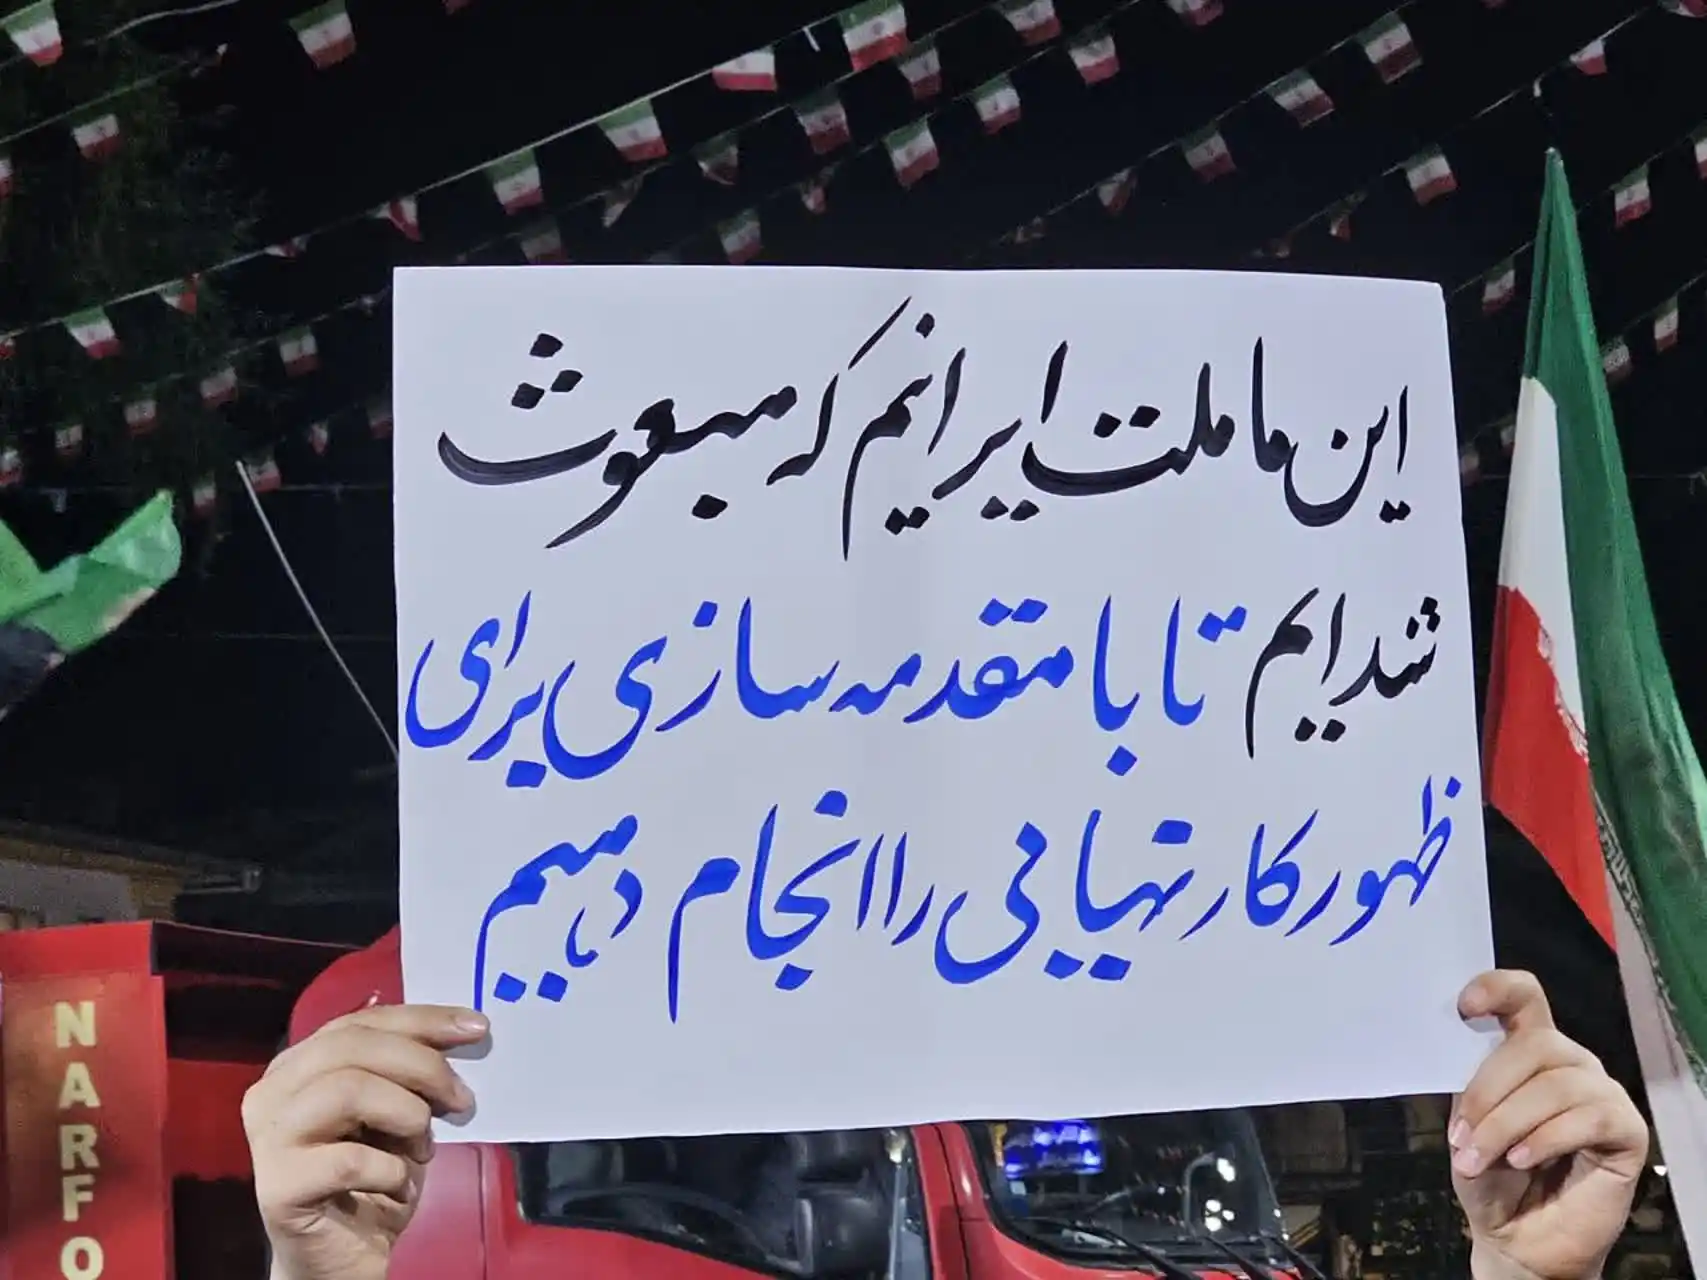 این ما ملت ایرانیم که مبعوث
شدایم تا با مقدمه سازی برای
ظهور کار نهیایی را انجام دهیم
NARFO